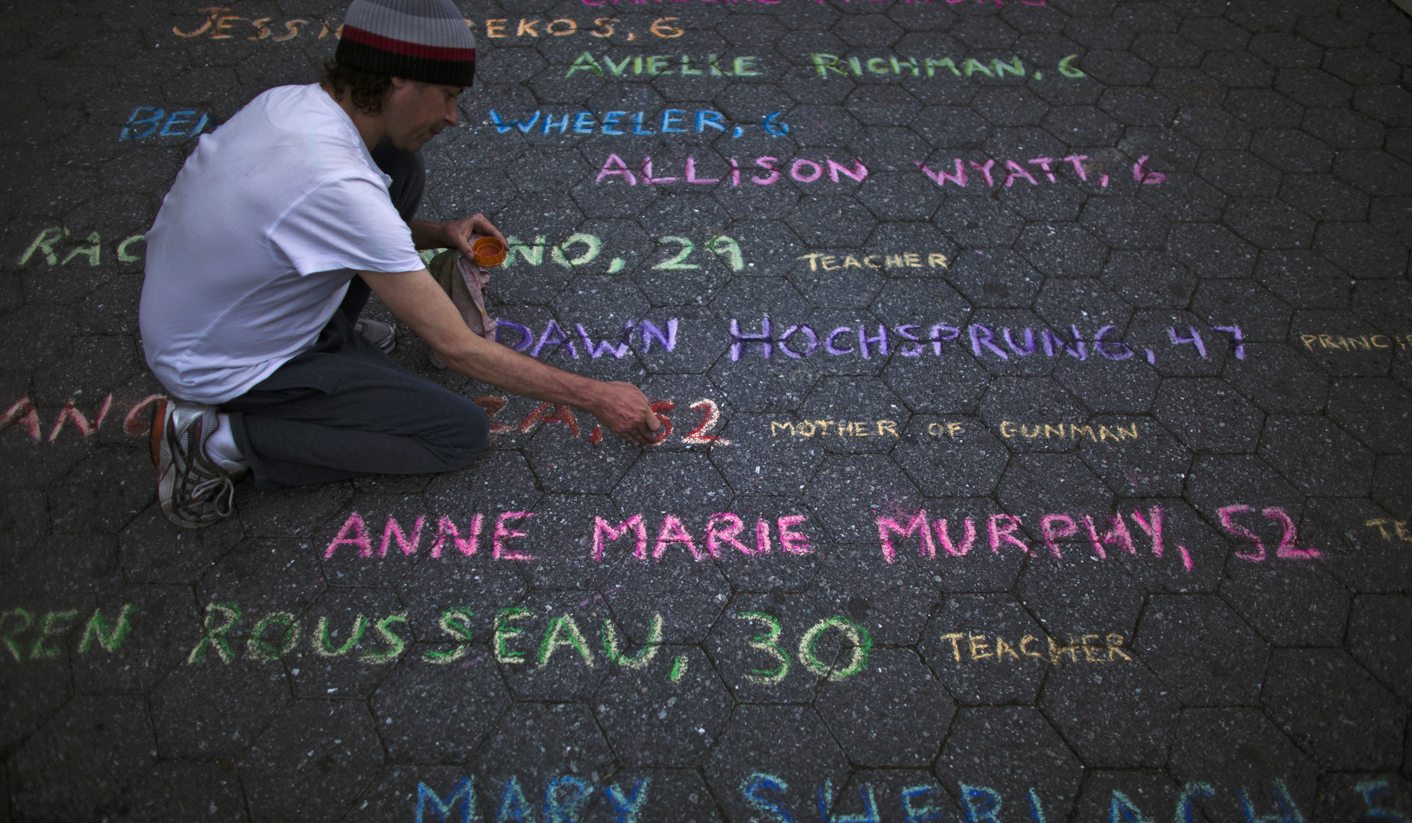 JESSI EKOS, 6
AVIELLE RICHMAN, 6
BE WHEELER, 6
ALLISON WYATT, 6
RAC NO, 29 TEACHER
DAWN HOCHSPRUNG, 47 PRINCI
AN ZA, 52 MOTHER OF GUNMAN
ANNE MARIE MURPHY, 52 TE
REN ROUSSEAU, 30 TEACHER
MARY SHERLACH